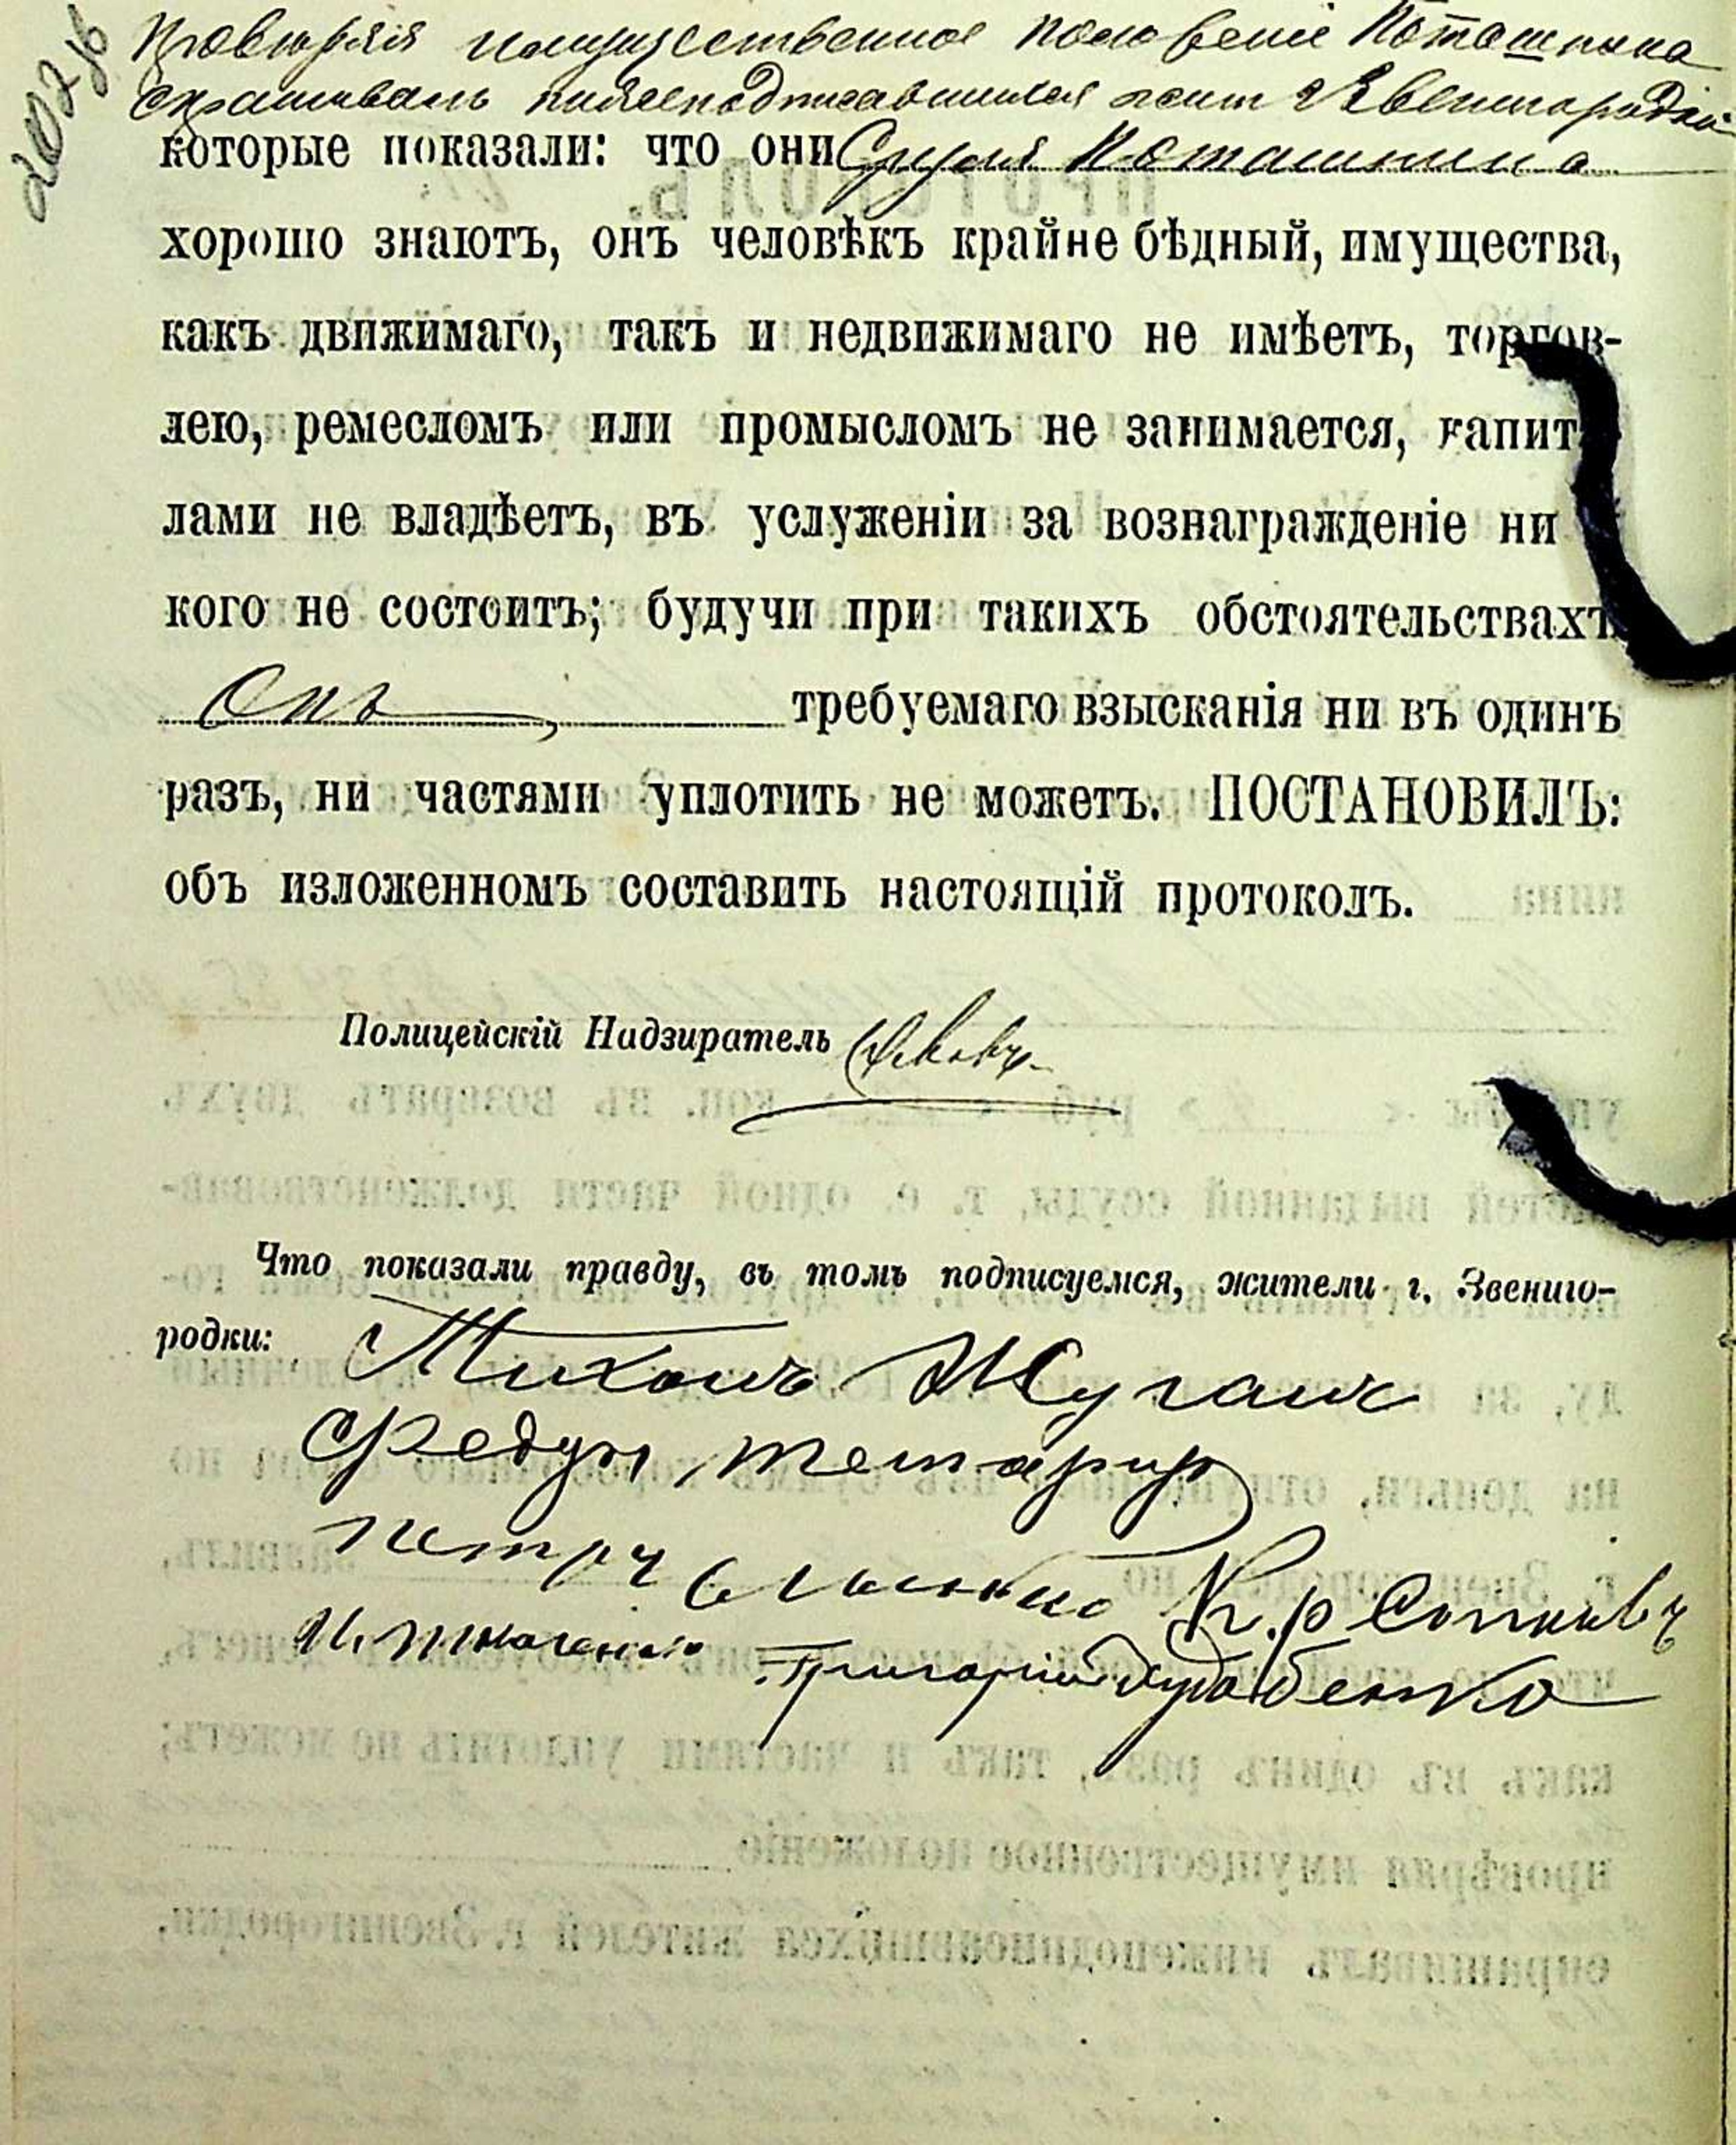 Провѣряя имущественное положеніе Поташника
спрашивалъ нижеподписавшихся жит г Звенигородки
которые показали: что они Сруля Поташника
хорошо знаютъ, онъ человѣкъ крайне бѣдный, имущества,
какъ движимаго, такъ и недвижимаго не имѣетъ, торгов-
лею, ремесломъ или промысломъ не занимается, капита
лами не владѣетъ, въ услуженіи за вознагражденіе ни
кого не состоитъ; будучи при такихъ обстоятельствахъ
Онъ, требуемаго взысканія ни въ одинъ
разъ, ни частями уплотить не можетъ. ПОСТАНОВИЛЪ:
объ изложенномъ составить настоящій протоколъ.
Полицейскій Надзиратель
Что показали правду, въ томъ подписуемся, жители г. Звениго-
родки:
Тихонъ Жуганъ
Петръ
Григорій